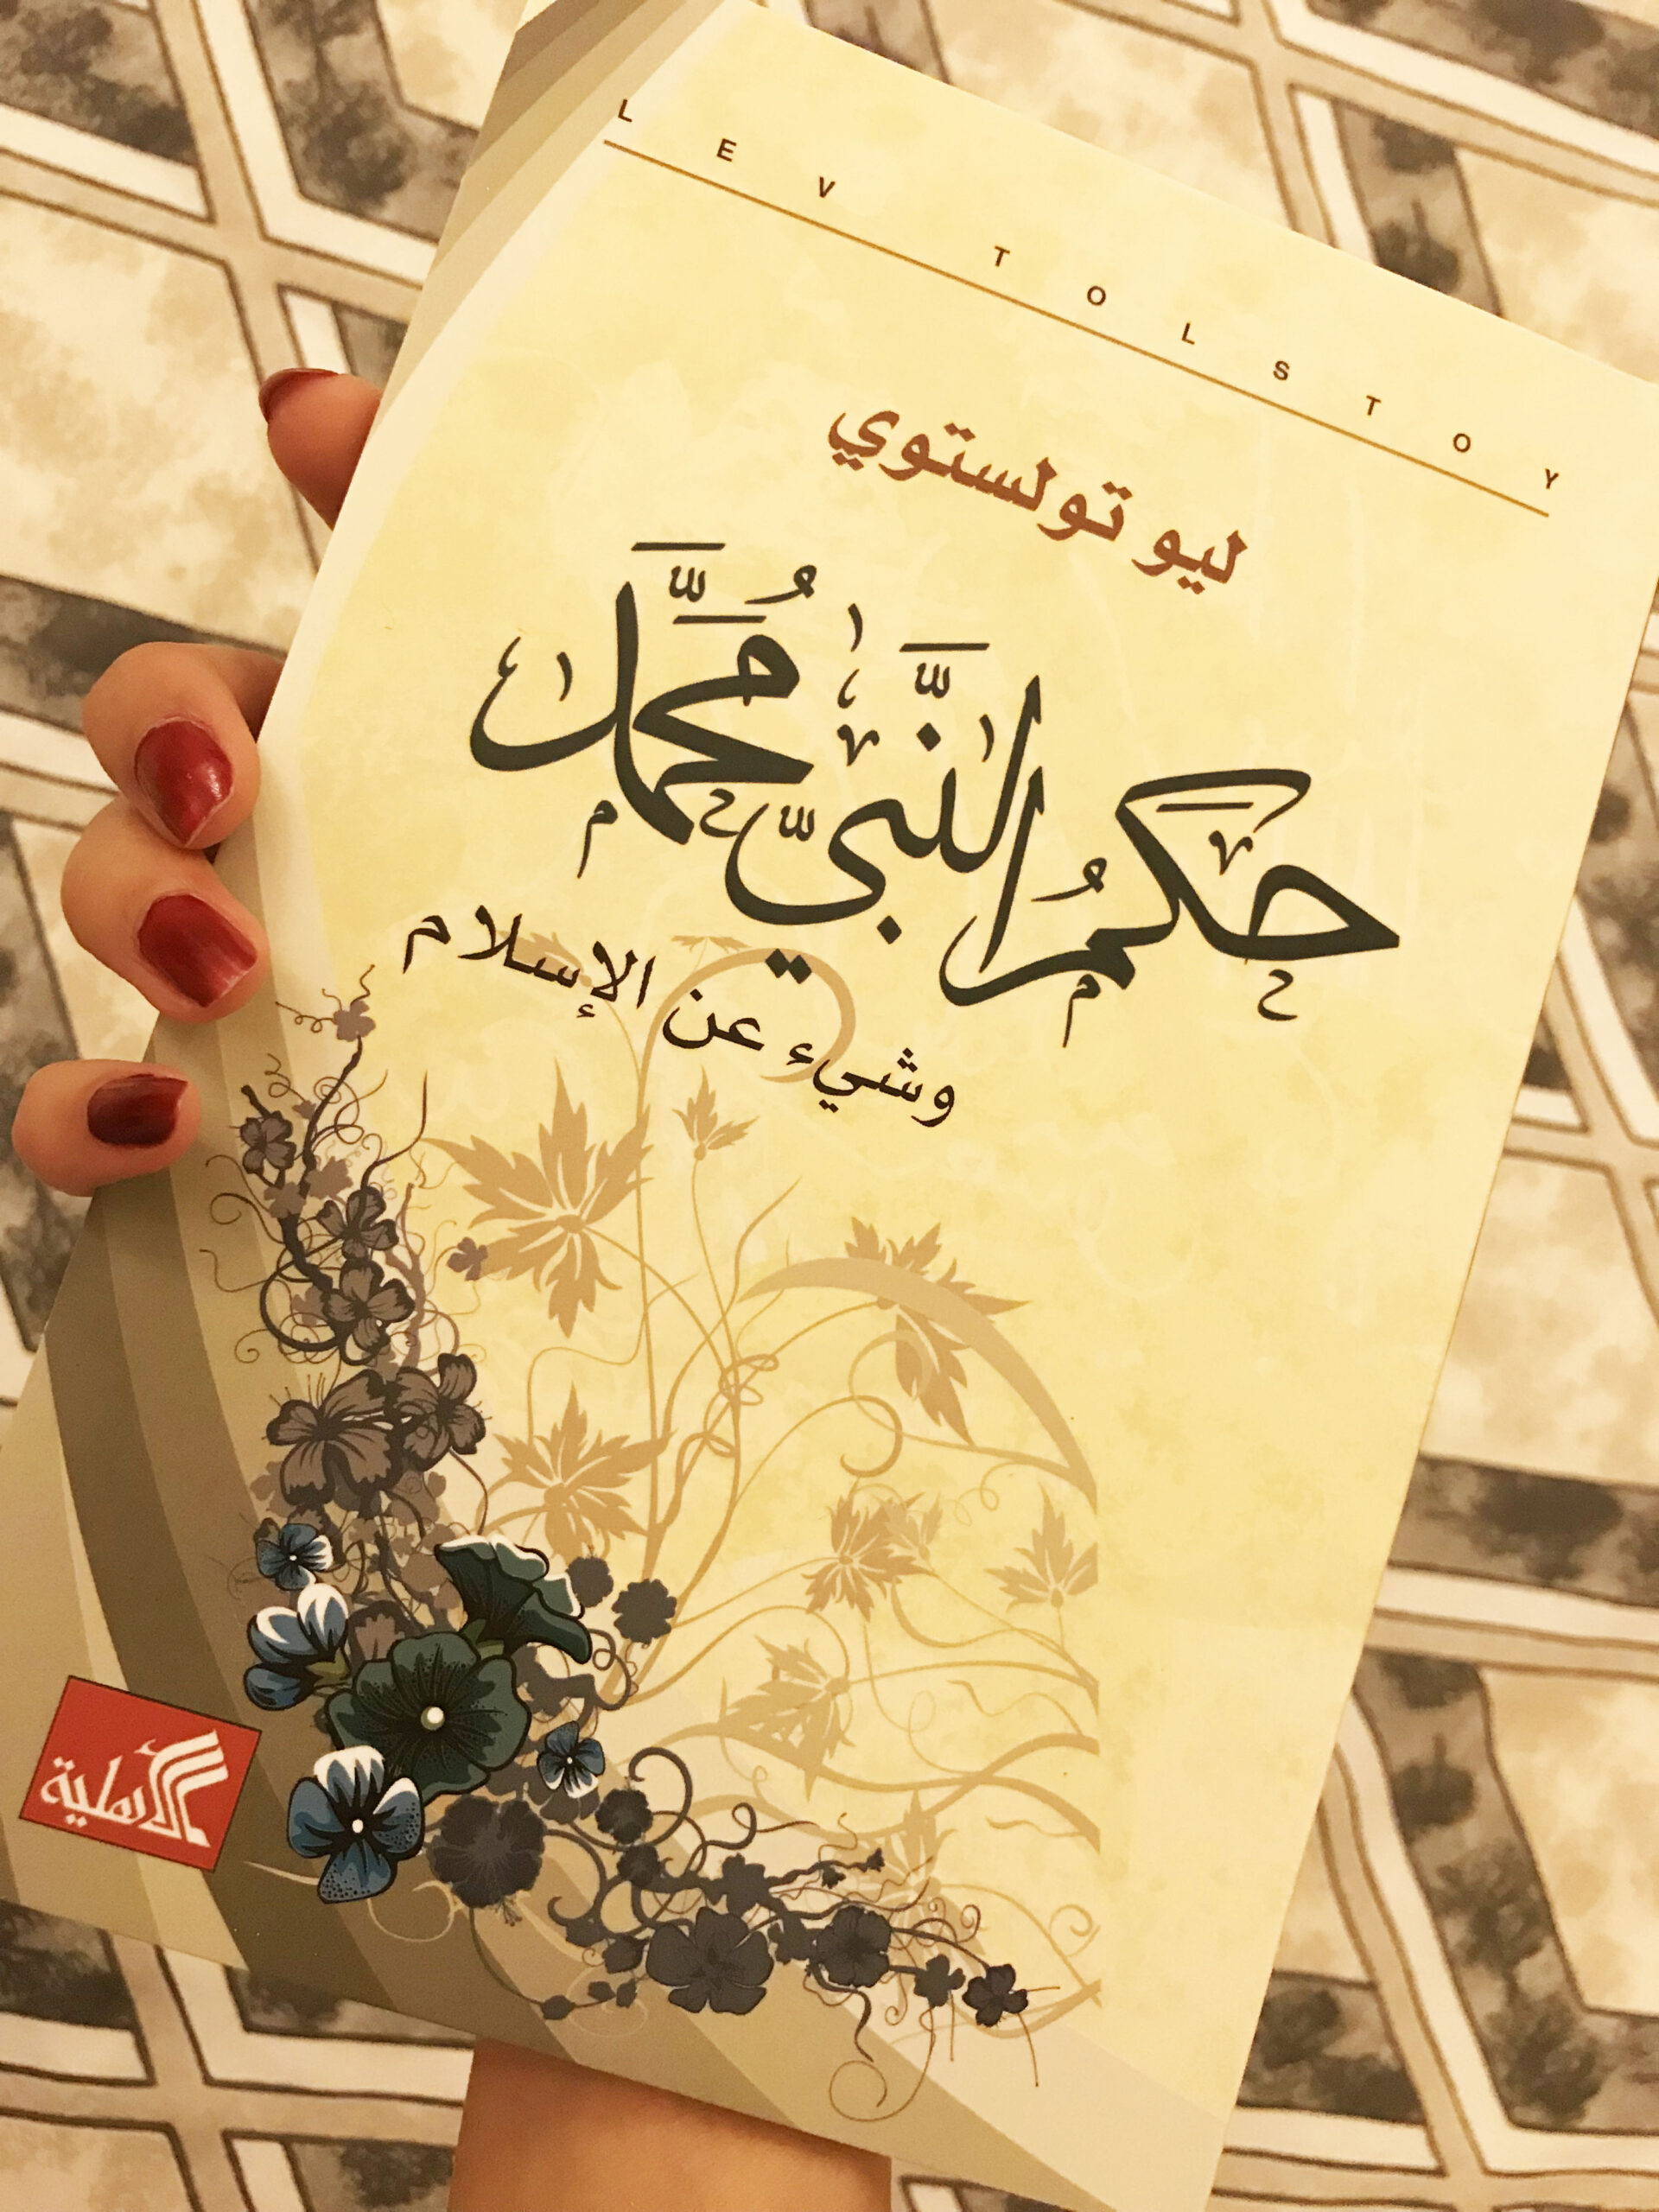 LEV TOLSTOY
ليو تولستوي
حِكَمُ النَّبِيّ مُحَمَّد
وشيء عن الإسلام
الأهلية